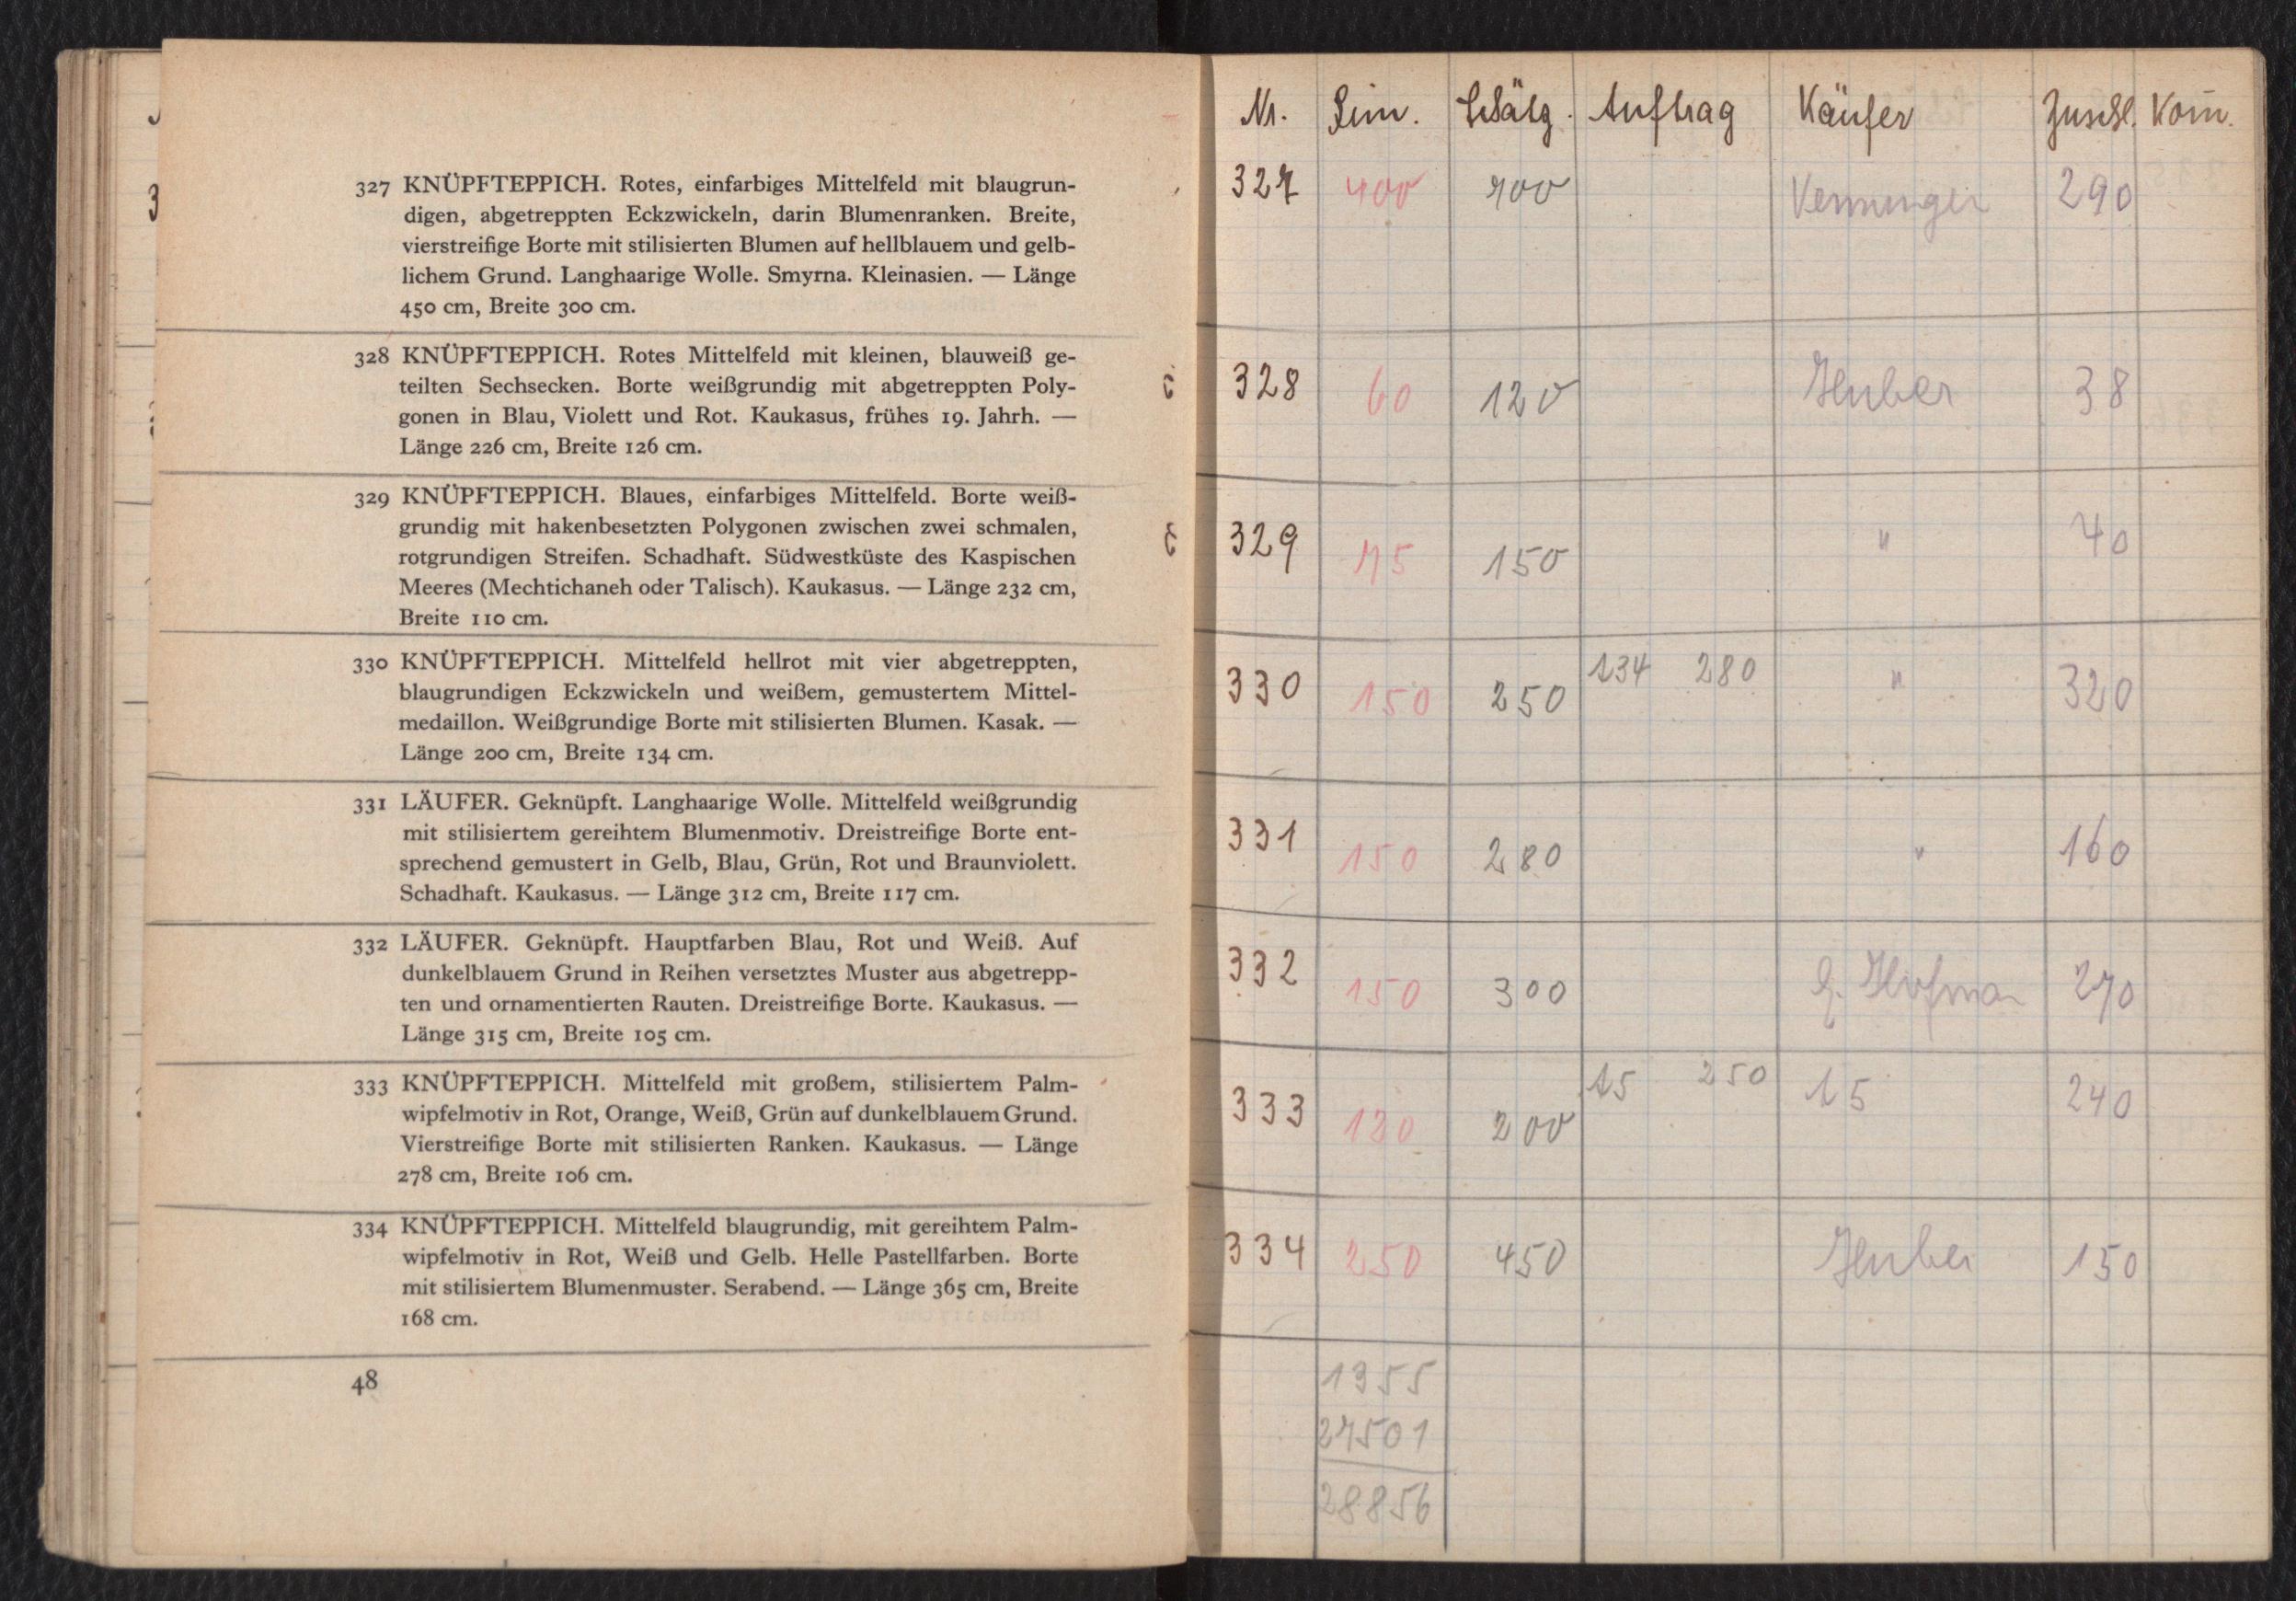 327 KNÜPFTEPPICH. Rotes, einfarbiges Mittelfeld mit blaugrun-
digen, abgetreppten Eckzwickeln, darin Blumenranken. Breite,
vierstreifige Borte mit stilisierten Blumen auf hellblauem und gelb-
lichem Grund. Langhaarige Wolle. Smyrna. Kleinasien. — Länge
450 cm, Breite 300 cm.
328 KNÜPFTEPPICH. Rotes Mittelfeld mit kleinen, blauweiß ge-
teilten Sechsecken. Borte weißgrundig mit abgetreppten Poly-
gonen in Blau, Violett und Rot. Kaukasus, frühes 19. Jahrh. —
Länge 226 cm, Breite 126 cm.
329 KNÜPFTEPPICH. Blaues, einfarbiges Mittelfeld. Borte weiß-
grundig mit hakenbesetzten Polygonen zwischen zwei schmalen,
rotgrundigen Streifen. Schadhaft. Südwestküste des Kaspischen
Meeres (Mechtichaneh oder Talisch). Kaukasus. — Länge 232 cm,
Breite 110 cm.
330 KNÜPFTEPPICH. Mittelfeld hellrot mit vier abgetreppten,
blaugrundigen Eckzwickeln und weißem, gemustertem Mittel-
medaillon. Weißgrundige Borte mit stilisierten Blumen. Kasak. —
Länge 200 cm, Breite 134 cm.
331 LÄUFER. Geknüpft. Langhaarige Wolle. Mittelfeld weißgrundig
mit stilisiertem gereihtem Blumenmotiv. Dreistreifige Borte ent-
sprechend gemustert in Gelb, Blau, Grün, Rot und Braunviolett.
Schadhaft. Kaukasus. — Länge 312 cm, Breite 117 cm.
332 LÄUFER. Geknüpft. Hauptfarben Blau, Rot und Weiß. Auf
dunkelblauem Grund in Reihen versetztes Muster aus abgetrepp-
ten und ornamentierten Rauten. Dreistreifige Borte. Kaukasus. —
Länge 315 cm, Breite 105 cm.
333 KNÜPFTEPPICH. Mittelfeld mit großem, stilisiertem Palm-
wipfelmotiv in Rot, Orange, Weiß, Grün auf dunkelblauem Grund.
Vierstreifige Borte mit stilisierten Ranken. Kaukasus. — Länge
278 cm, Breite 106 cm.
334 KNÜPFTEPPICH. Mittelfeld blaugrundig, mit gereihtem Palm-
wipfelmotiv in Rot, Weiß und Gelb. Helle Pastellfarben. Borte
mit stilisiertem Blumenmuster. Serabend. — Länge 365 cm, Breite
168 cm.
48
Nr. Lim. Schätz. Auftrag Käufer Zuschl. Kom.
327 400 700 290
328 60 120 Huber 38
329 75 150 " 40
330 150 250 134 280 " 320
331 150 280 " 160
332 150 300 Hofman 270
333 120 200 15 250 15 240
334 250 450 Huber 150
1355
27501
28856